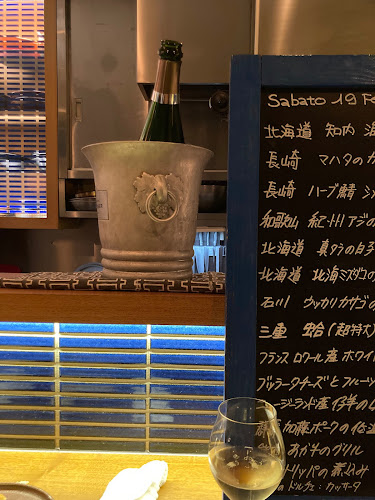 Sabato 19 Fe
北海道 知内
長崎 マハタのカ
長崎 ハーブ鯖
和歌山 紀州アジの
北海道 真ダラの白子
北海道 北海ミズダコ
石川 ウッカリカサゴの
三重 蛤(超特大)
フランス ロワール産 ホワイ
ブッラータチーズとフルーツ
ージーランド産仔羊の
加藤ポークの
おがわのグリル
トリッパの煮込み
ドルチェ:カッサータ